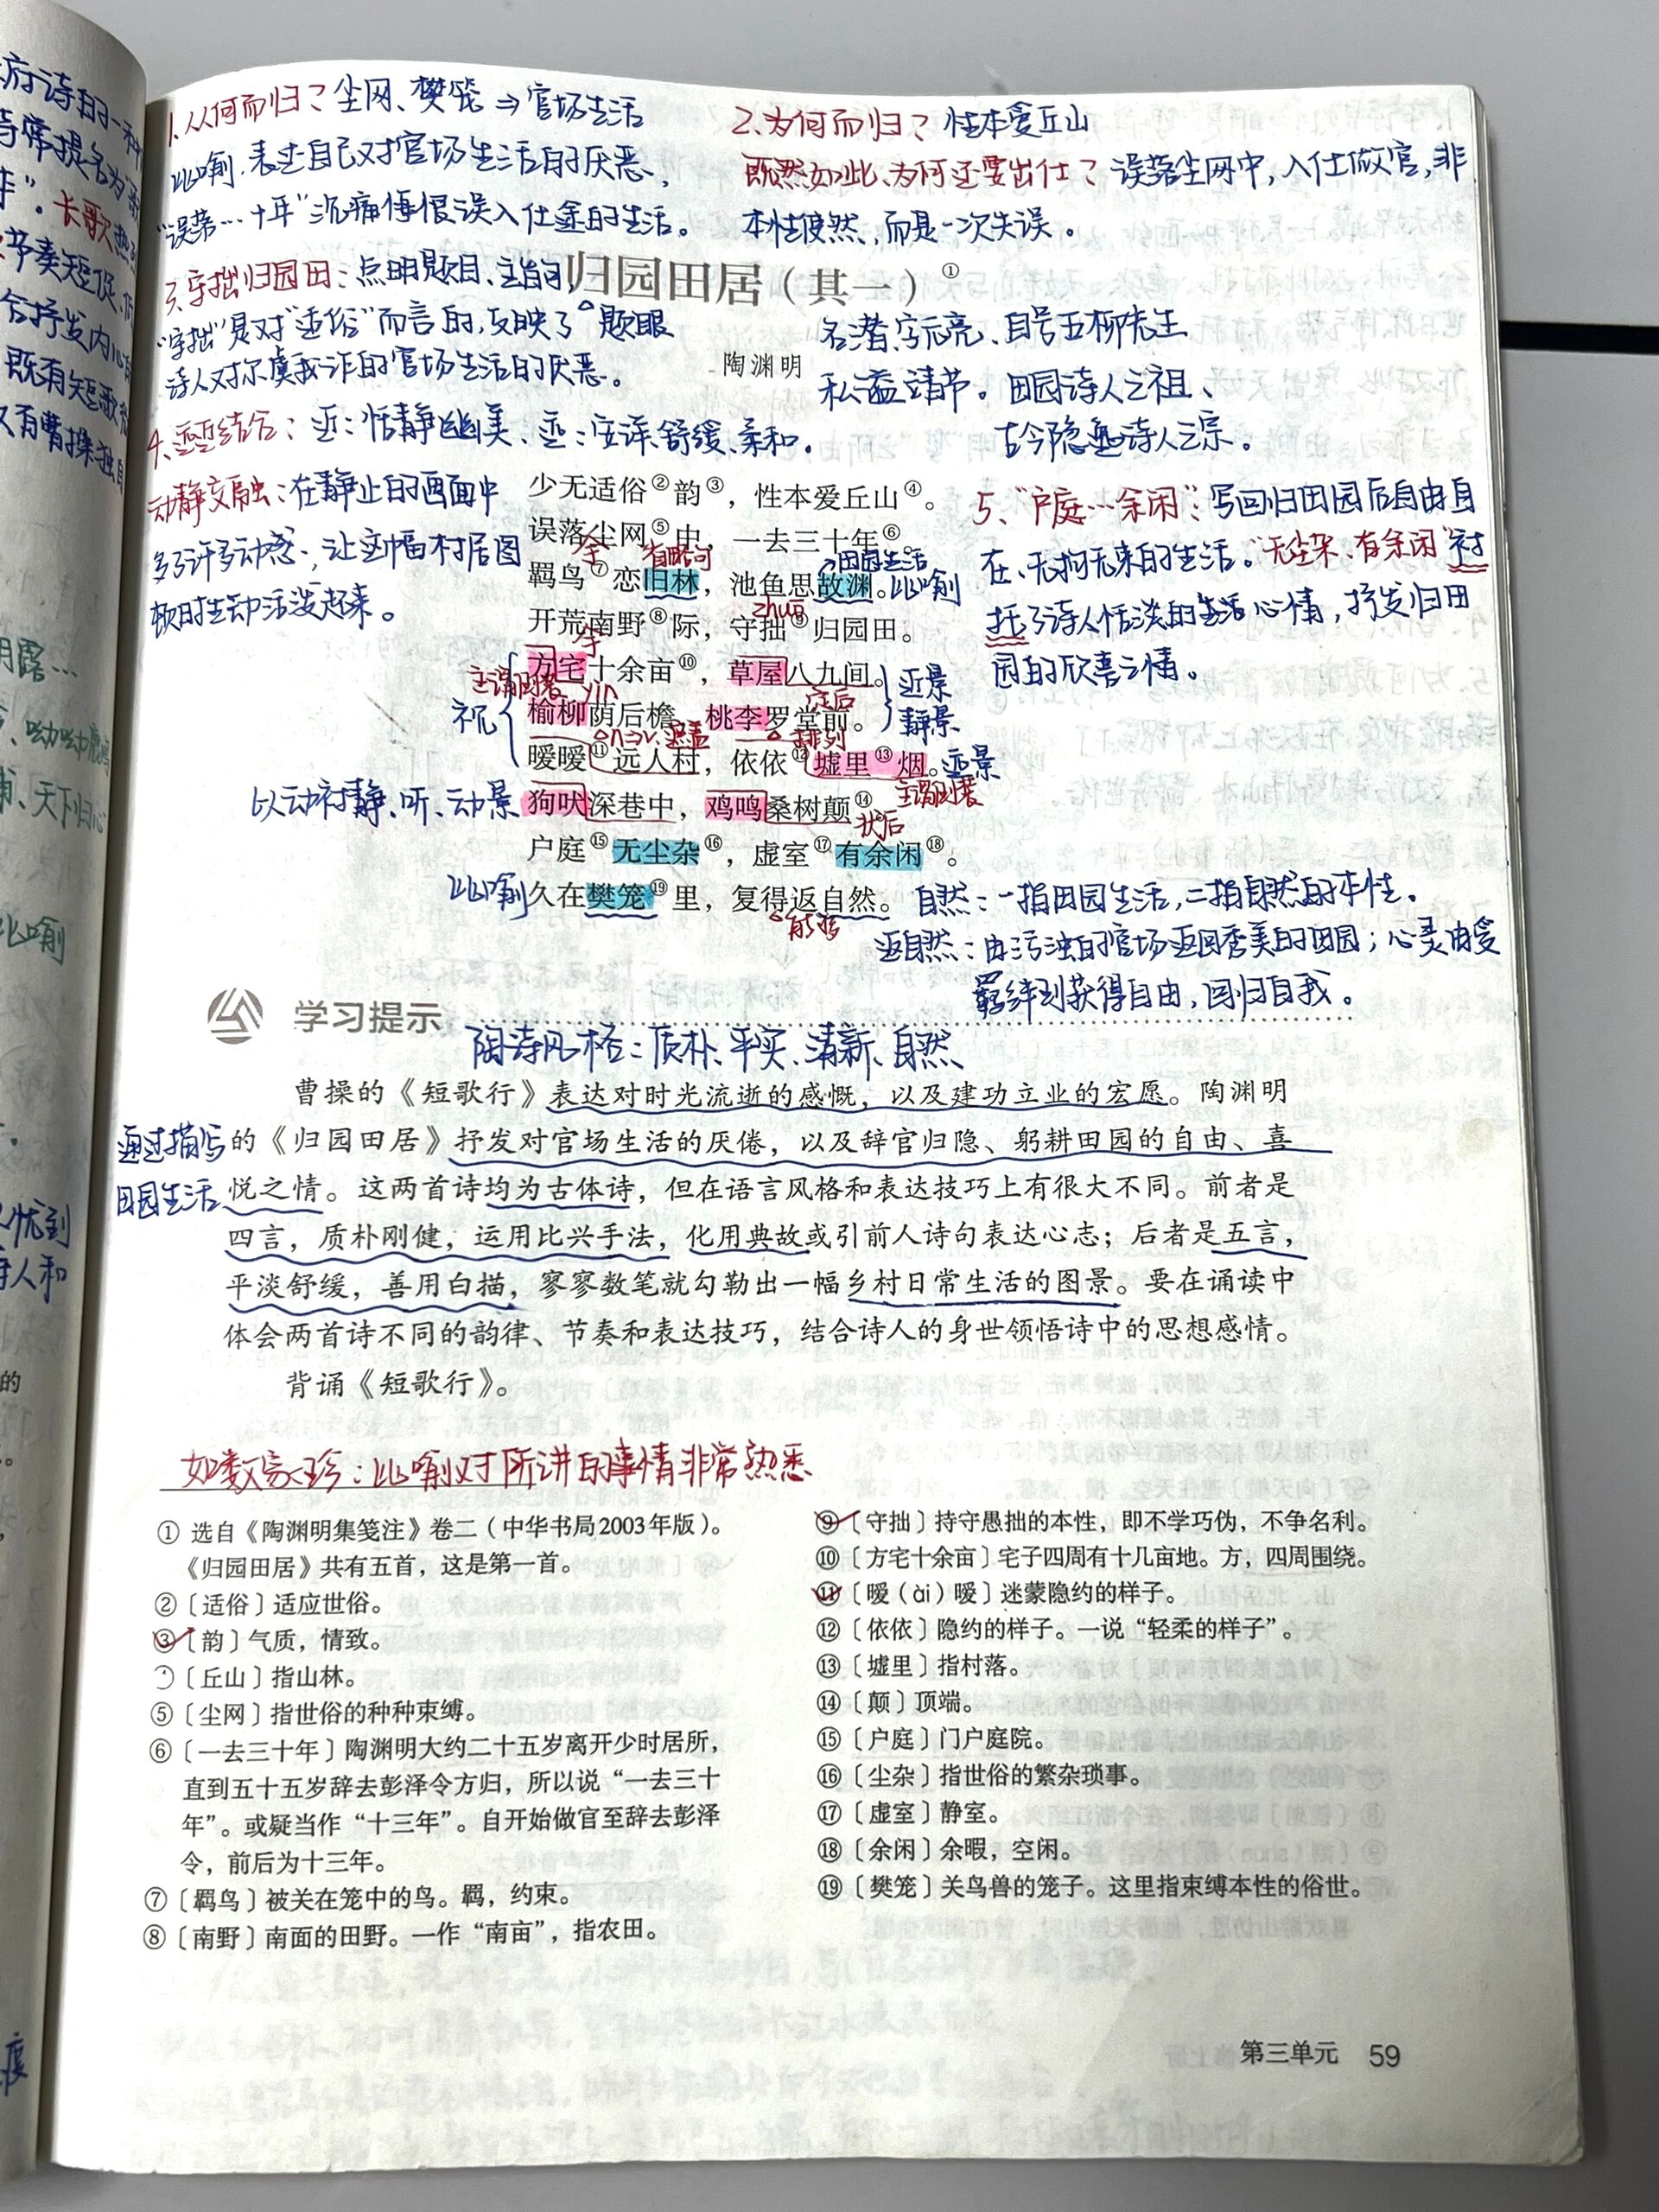 府诗的一种
长歌热烈
节奏短促
合抒发内心
既有短歌
又有曹操独自
明露…
呦呦鹿鸣
天下归心
比喻
忧到
诗人和
的
1、从何而归？尘网、樊笼⇒官场生活
比喻，表达自己对官场生活的厌恶，
“误落…十年”沉痛悔恨误入仕途的生活。
2、为何而归？性本爱丘山
既然如此、为何还要出仕？误落尘网中，入仕做官，非
本性使然，而是一次失误。
3、守拙归园田：点明题目、主旨句
“守拙”是对“适俗”而言的，反映了
诗人对尔虞我诈的官场生活的厌恶。
归园田居（其一）①
题眼
陶渊明
名潜，字元亮、自号五柳先生
私谥靖节。田园诗人之祖、
古今隐逸诗人之宗。
4、远近结合：近：恬静幽美、远：安详、舒缓、柔和。
动静交融：在静止的画面中
多了许多动态，让这幅村居图
顿时生动活泼起来。
5、“户庭…余闲”：写回归田园后自由自
在、无拘无束的生活。“无尘杂、有余闲”衬
托了诗人恬淡的生活心情，抒发归田
园的欣喜之情。
少无适俗②韵③，性本爱丘山④。
误落尘网⑤中，一去三十年⑥。
田园生活
羁鸟⑦恋旧林，池鱼思故渊。比喻
zhuō
开荒南野⑧际，守拙⑨归园田。
方宅十余亩⑩，草屋八九间。
近景
静景
主谓倒装
yìn
视
榆柳荫后檐，桃李罗堂前。
遮盖
排列
暧暧⑪远人村，依依⑫墟里⑬烟。远景
主谓倒装
以动衬静、听、动景
狗吠深巷中，鸡鸣桑树颠⑭。
状后
户庭⑮无尘杂⑯，虚室⑰有余闲⑱。
比喻
久在樊笼⑲里，复得返自然。
能够
自然：一指田园生活，二指自然的本性。
返自然：由污浊的官场返回秀美的田园；心灵由受
羁绊到获得自由，回归自我。
学习提示
陶诗风格：质朴、平实、清新、自然
曹操的《短歌行》表达对时光流逝的感慨，以及建功立业的宏愿。陶渊明
通过描写
的《归园田居》抒发对官场生活的厌倦，以及辞官归隐、躬耕田园的自由、喜
田园生活
悦之情。这两首诗均为古体诗，但在语言风格和表达技巧上有很大不同。前者是
四言，质朴刚健，运用比兴手法，化用典故或引前人诗句表达心志；后者是五言，
平淡舒缓，善用白描，寥寥数笔就勾勒出一幅乡村日常生活的图景。要在诵读中
体会两首诗不同的韵律、节奏和表达技巧，结合诗人的身世领悟诗中的思想感情。
背诵《短歌行》。
如数家珍：比喻对所讲的事情非常熟悉
① 选自《陶渊明集笺注》卷二（中华书局2003年版）。
《归园田居》共有五首，这是第一首。
②〔适俗〕适应世俗。
③〔韵〕气质，情致。
〔丘山〕指山林。
⑤〔尘网〕指世俗的种种束缚。
⑥〔一去三十年〕陶渊明大约二十五岁离开少时居所，
直到五十五岁辞去彭泽令方归，所以说“一去三十
年”。或疑当作“十三年”。自开始做官至辞去彭泽
令，前后为十三年。
⑦〔羁鸟〕被关在笼中的鸟。羁，约束。
⑧〔南野〕南面的田野。一作“南亩”，指农田。
⑨〔守拙〕持守愚拙的本性，即不学巧伪，不争名利。
⑩〔方宅十余亩〕宅子四周有十几亩地。方，四周围绕。
⑪〔暧（ài）暧〕迷蒙隐约的样子。
⑫〔依依〕隐约的样子。一说“轻柔的样子”。
⑬〔墟里〕指村落。
⑭〔颠〕顶端。
⑮〔户庭〕门户庭院。
⑯〔尘杂〕指世俗的繁杂琐事。
⑰〔虚室〕静室。
⑱〔余闲〕余暇，空闲。
⑲〔樊笼〕关鸟兽的笼子。这里指束缚本性的俗世。
第三单元 59